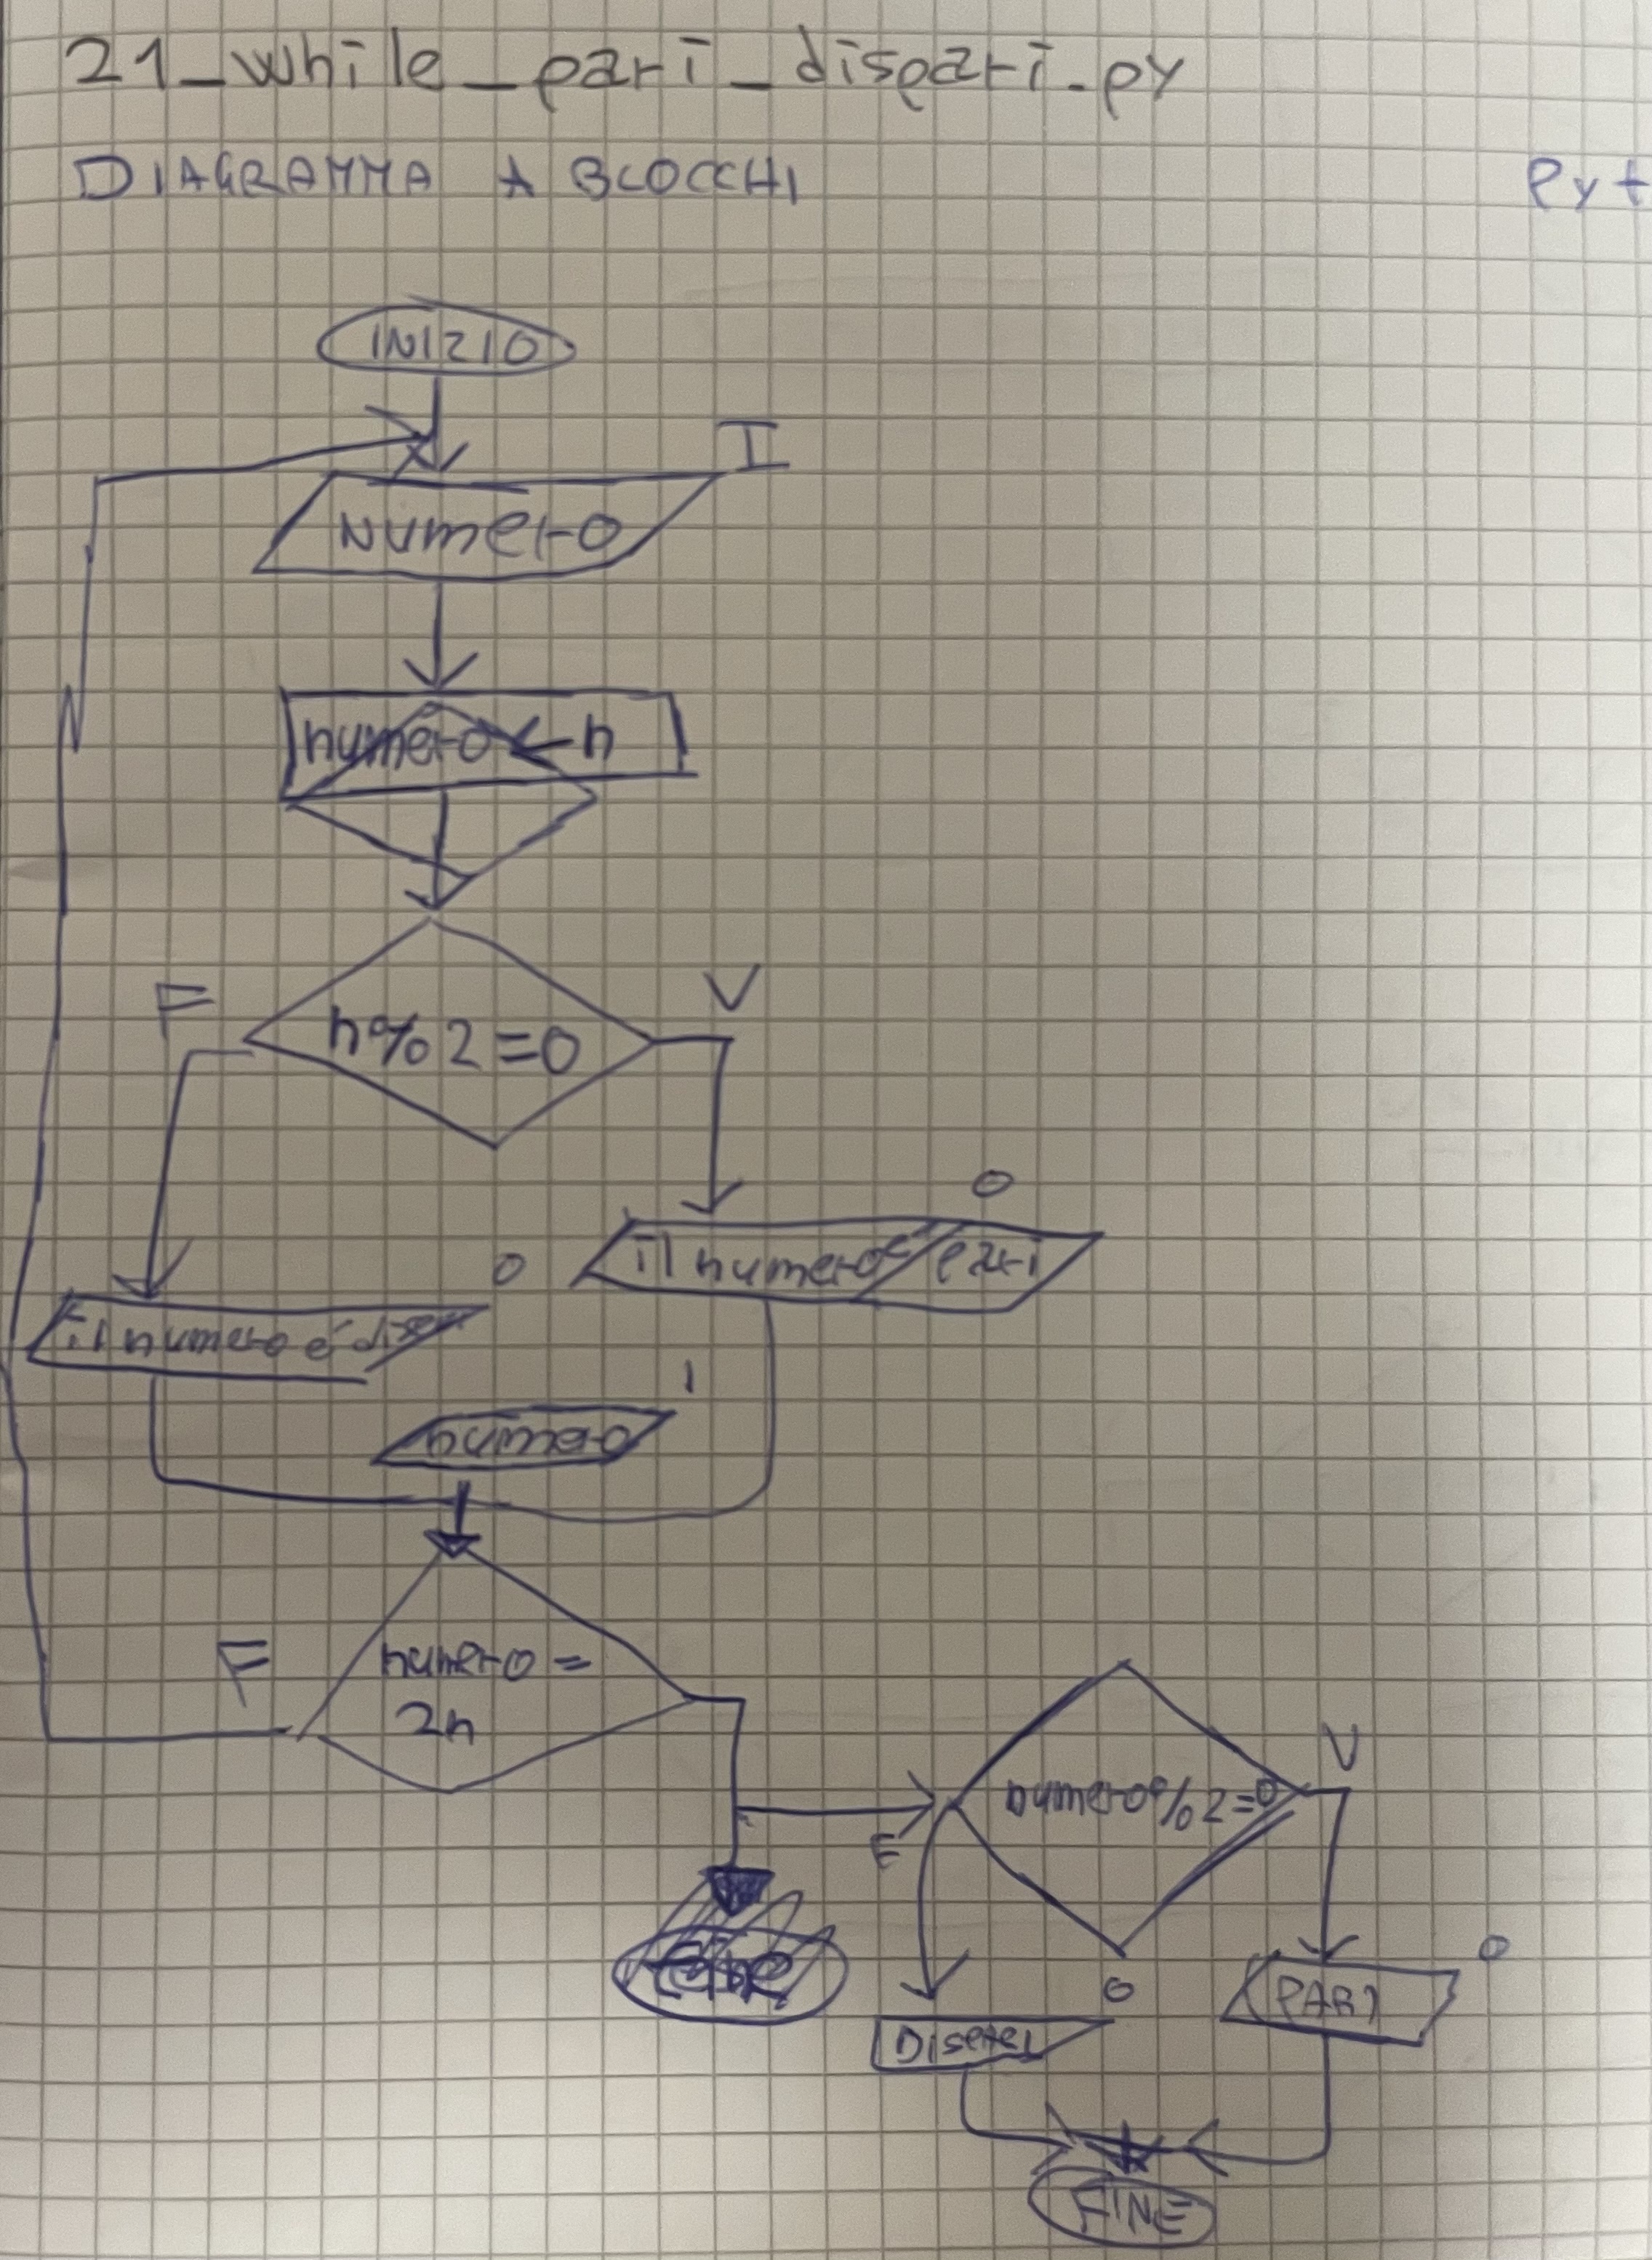 21_while_pari_dispari.py
DIAGRAMMA A BLOCCHI
Pyt
INIZIO
I
numero
numero ← n
F
V
n%2=0
O
il numero è pari
O
il numero è disp
I
numero
F
numero =
2n
V
numero%2=0
F
O
PARI
O
DISPARI
FINE